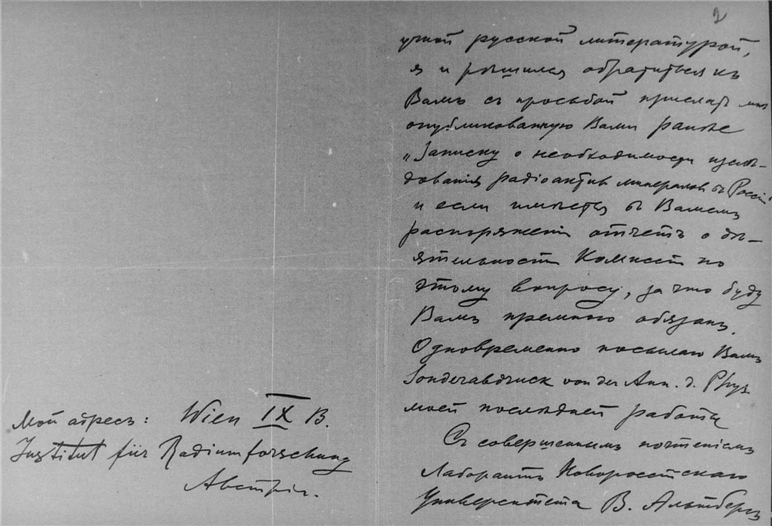 Мой адресъ: Wien IX B.
Institut für Radiumforschung
Австрія.
2
учной русской литературой,
я и рѣшился обратиться къ
Вамъ съ просьбой прислать мнѣ
опубликованную Вами ранѣе
„Записку о необходимости изслѣ-
дованія радіоактив минераловъ въ Россіи"
и если имѣется въ Вашемъ
распоряженіи отчетъ о дѣ-
ятельности Комиссіи по
этому вопросу, за что буду
Вамъ премного обязанъ.
Одновременно посылаю Вамъ
Sonderabdruck von der Ann. d. Phys
моей послѣдней работы
Съ совершеннымъ почтеніемъ
Лаборантъ Новороссійскаго
Университета В. Альтбергъ